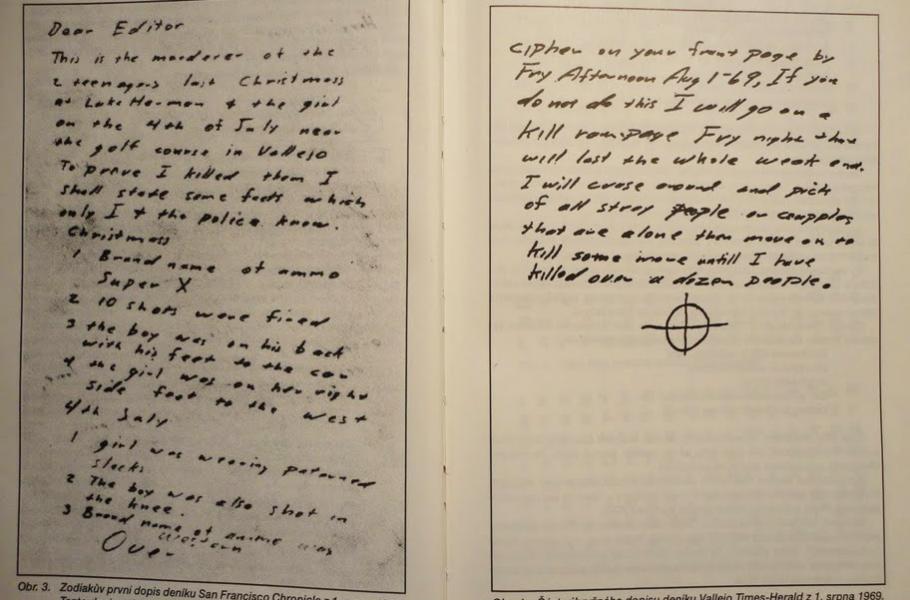 Dear Editor
This is the murderer of the
2 teenagers last Christmass
at Lake Herman & the girl
on the 4th of July near
the golf course in Vallejo
To prove I killed them I
shall state some facts which
only I & the police know.
Christmass
1 Brand name of ammo
Super X
2 10 shots were fired
3 the boy was on his back
with his feet to the car
4 the girl was on her right
side feet to the west
4th July
1 girl was wearing paterned
slacks
2 The boy was also shot in
the knee.
3 Brand name of ammo was
western
Over
Obr. 3. Zodiakův první dopis deníku San Francisco Chronicle z
cipher on your front page by
Fry Afternoon Aug 1-69, If you
do not do this I will go on a
kill rampage Fry night that
will last the whole week end.
I will cruse around and pick
of all stray people or coupples
that are alone then move on to
kill some more untill I have
killed over a dozen people.
dopisu deníku Vallejo Times-Herald z 1. srpna 1969.